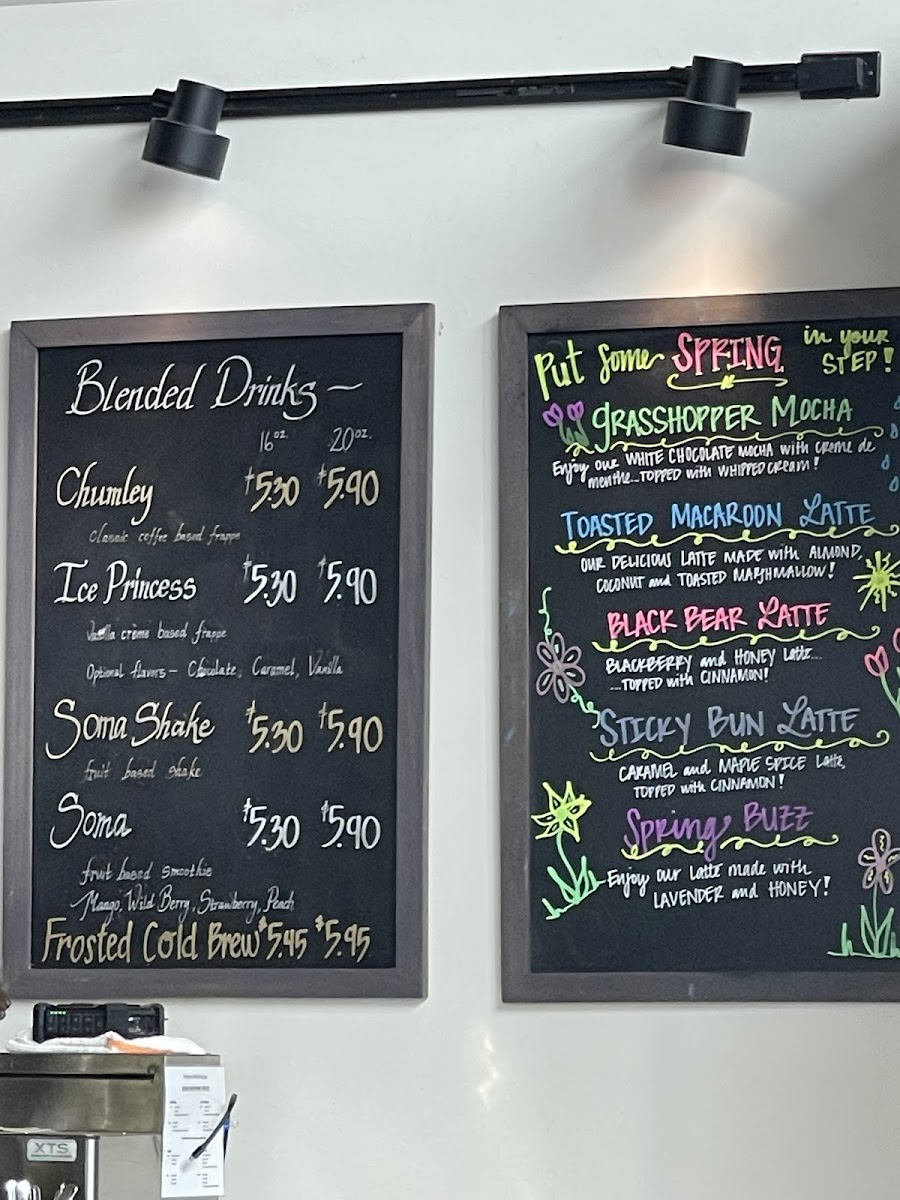 Blended Drinks ~
16 oz. 20 oz.
Chumley $5.30 $5.90
Classic coffee based frappe
Ice Princess $5.30 $5.90
Vanilla crème based frappe
Optional flavors – Chocolate, Caramel, Vanilla
Soma Shake $5.30 $5.90
fruit based shake
Soma $5.30 $5.90
fruit based smoothie
Mango, Wild Berry, Strawberry, Peach
Frosted Cold Brew $5.45 $5.95
Put Some SPRING in your
STEP!
GRASSHOPPER MOCHA
Enjoy our WHITE CHOCOLATE MOCHA with creme de
menthe...TOPPED with WHIPPED CREAM!
TOASTED MACAROON LATTE
OUR DELICIOUS LATTE MADE with ALMOND,
COCONUT and TOASTED MARSHMALLOW!
BLACK BEAR LATTE
BLACKBERRY and HONEY Latte...
...TOPPED with CINNAMON!
STICKY BUN LATTE
CARAMEL and MAPLE SPICE Latte,
TOPPED with CINNAMON!
Spring BUZZ
Enjoy our Latte made with
LAVENDER and HONEY!
XTS